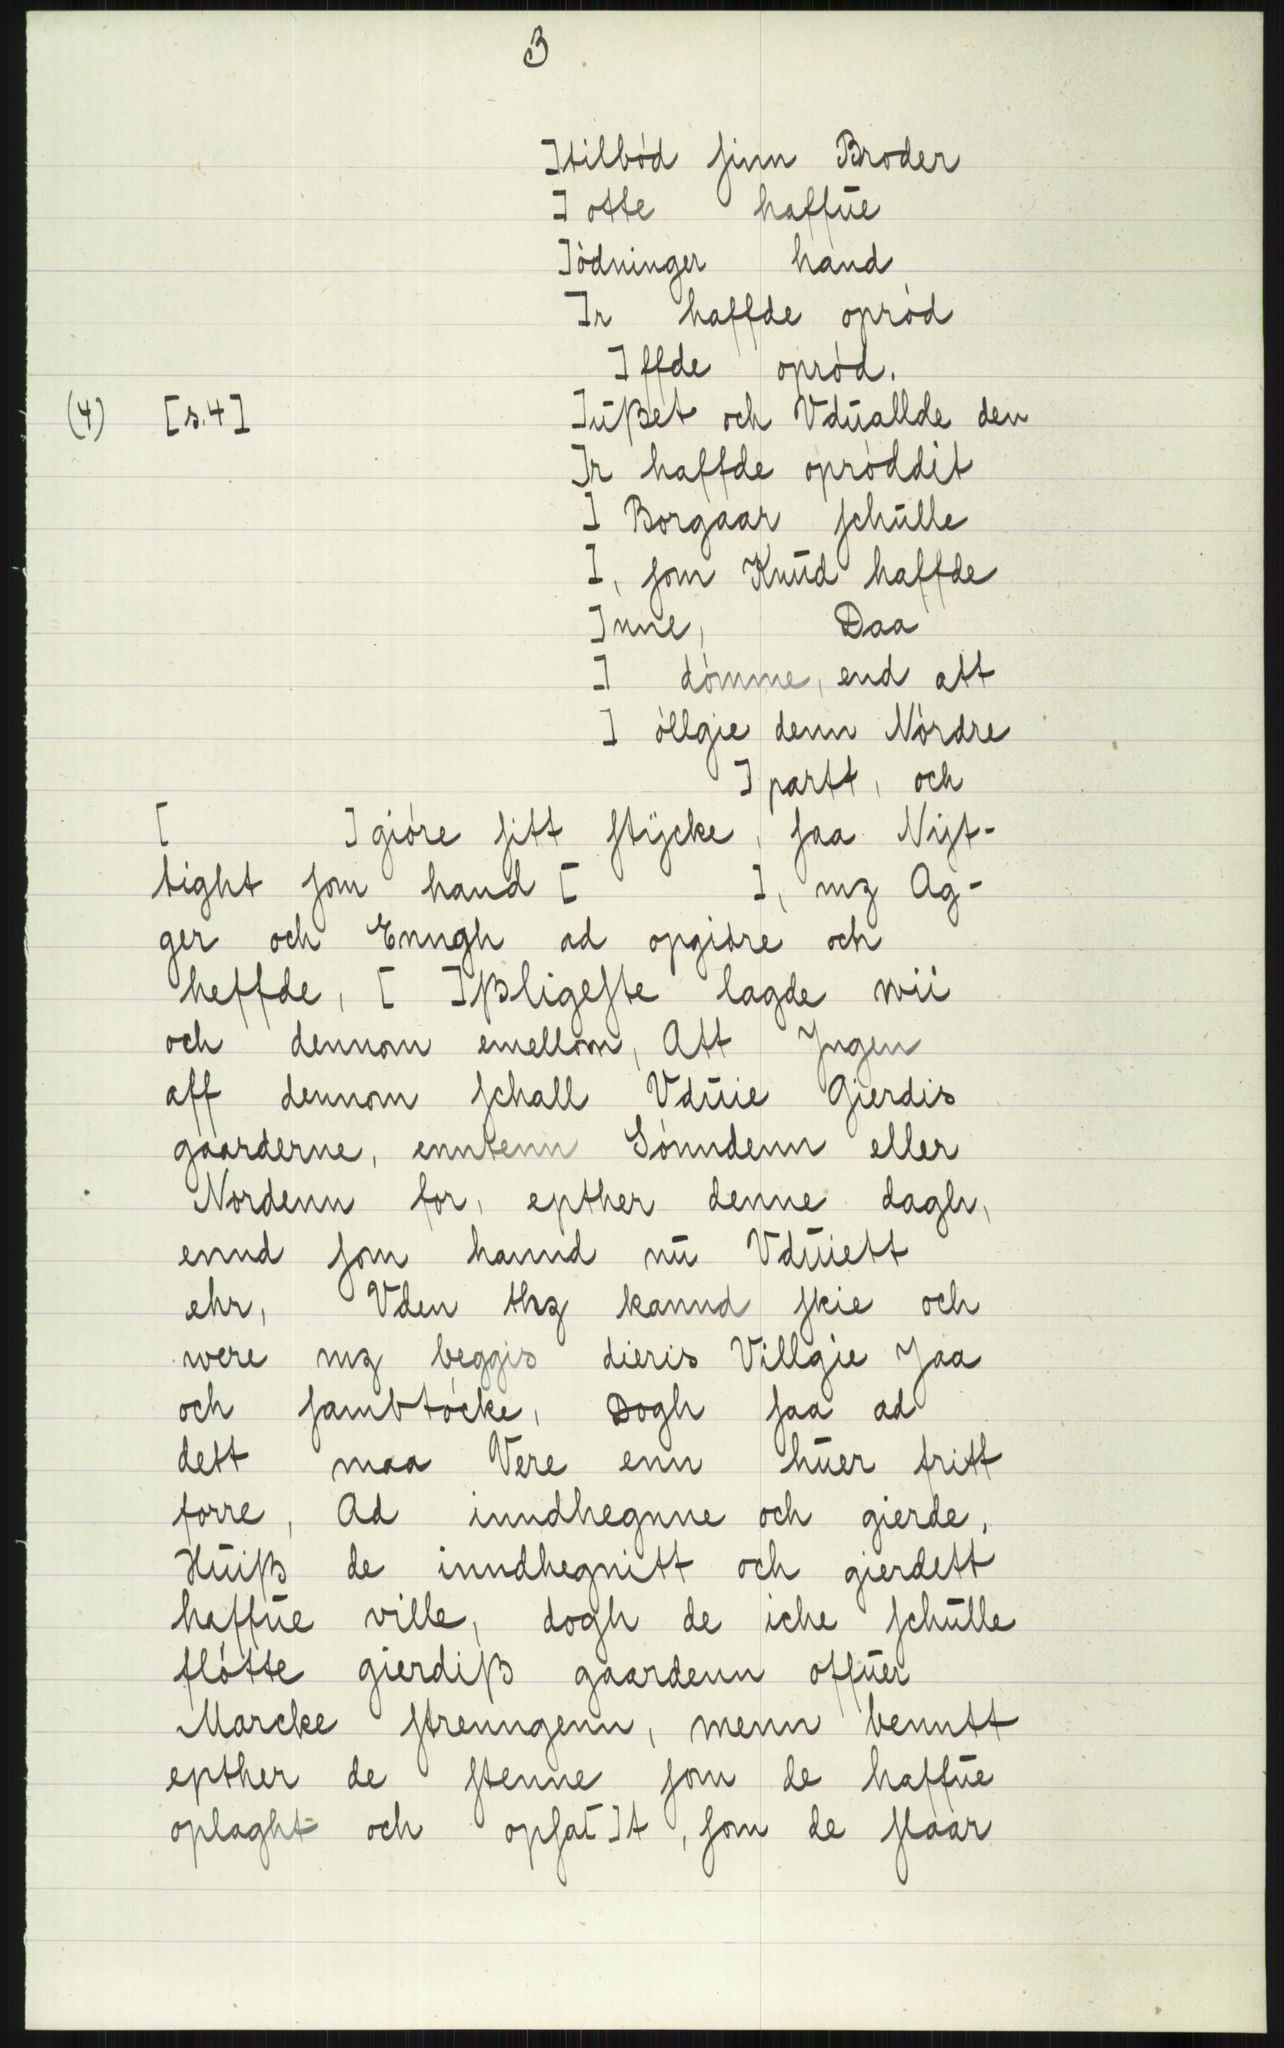 3
]tilbód sinn Broder
] otte haffūe
]ódninger hand
]r haffde opród
]ffde opród.
(4) [s.4] ]ūßet och Vdūallde den
]r haffde opróddit
] Borgaar schūlle
], som Knūd haffde
]nne, Daa
] dómme, end att
] óllgie denn Nórdre
] partt, och
[ ]gióre sitt stÿcke, saa Nyt-
tight som hand [ ], mz Ag-
ger och Enngh ad opgióre och
heffde, [ ]ßligeste lagde wii
och dennom emellom, Att Jngen
aff dennom schall Vdūie Gierdis
gaarderne, enntenn Sónndenn eller
Nordenn for, epther denne dagh,
ennd som hannd nū Vdūiett
ehr, Vden thz kannd skie och
were mz beggis dieris Villgie Jaa
och sambtócke, Dogh saa ad
dett maa Vere enn hūer fritt
forre, Ad inndhegnne och gierde,
Hūiß de inndhegnitt och gierdett
haffūe ville, dogh de iche schūlle
flótte gierdiß gaardenn offūer
Marcke strenngenn, menn benntt
epther de stenne som de haffūe
oplaght och opsat[ ]t, som de staar